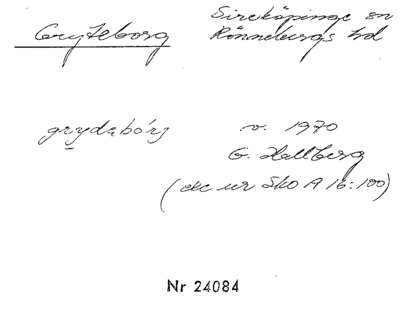 Gryteborg
Sireköpinge sn
Rönnebergs hd
grydabórj
v. 1970
G. Hallberg
(exc ur Sko A 16:100)
Nr 24084